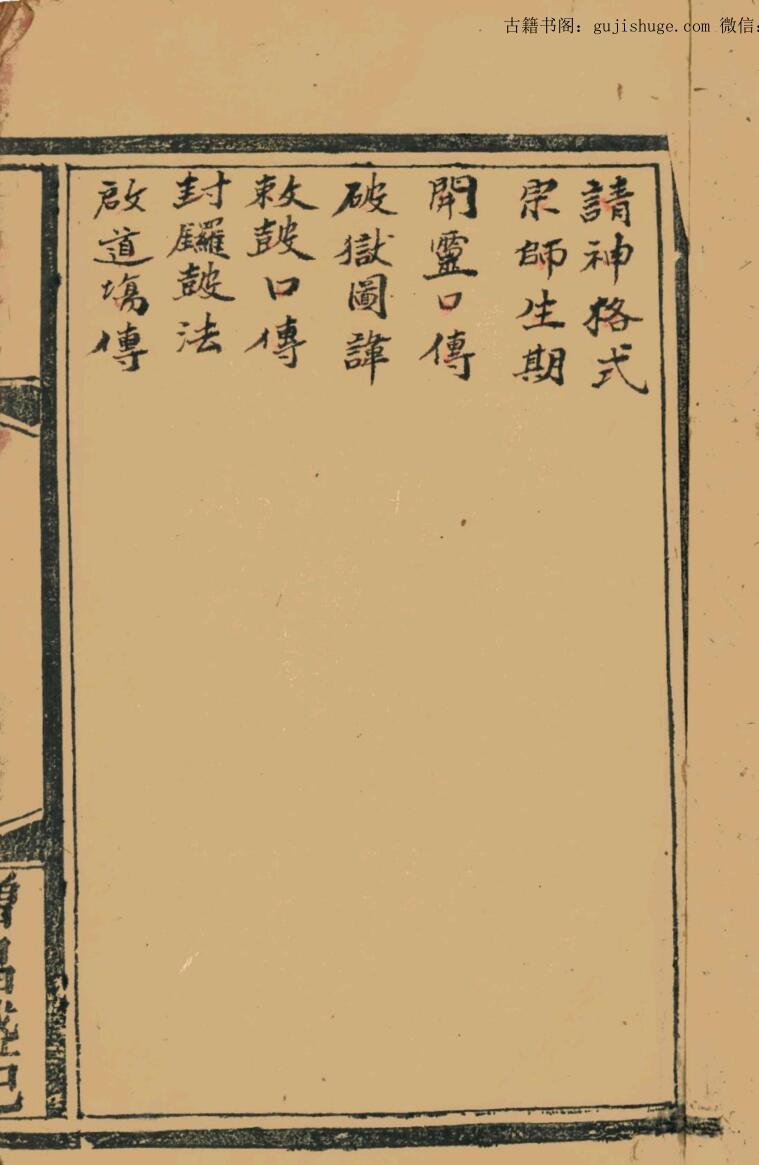 古籍书阁：gujishuge.com 微信：
請神格式
宗師生期
開靈口傳
破獄圖諱
敕鼓口傳
封鑼鼓法
啟道塲傳